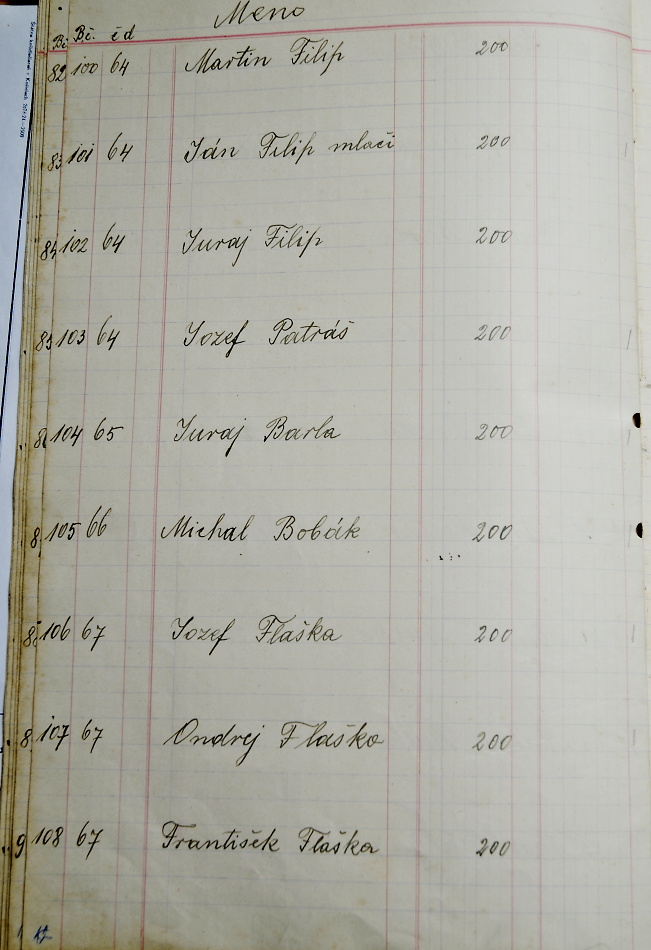 Bč. čd Meno
82 100 64 Martin Filip 200
83 101 64 Ján Filip mlači 200
84 102 64 Juraj Filip 200
85 103 64 Jozef Patráš 200
8 104 65 Juraj Barla 200
8 105 66 Michal Bobák 200
8 106 67 Jozef Flaška 200
8 107 67 Ondrej Flaško 200
9 108 67 František Flaška 200